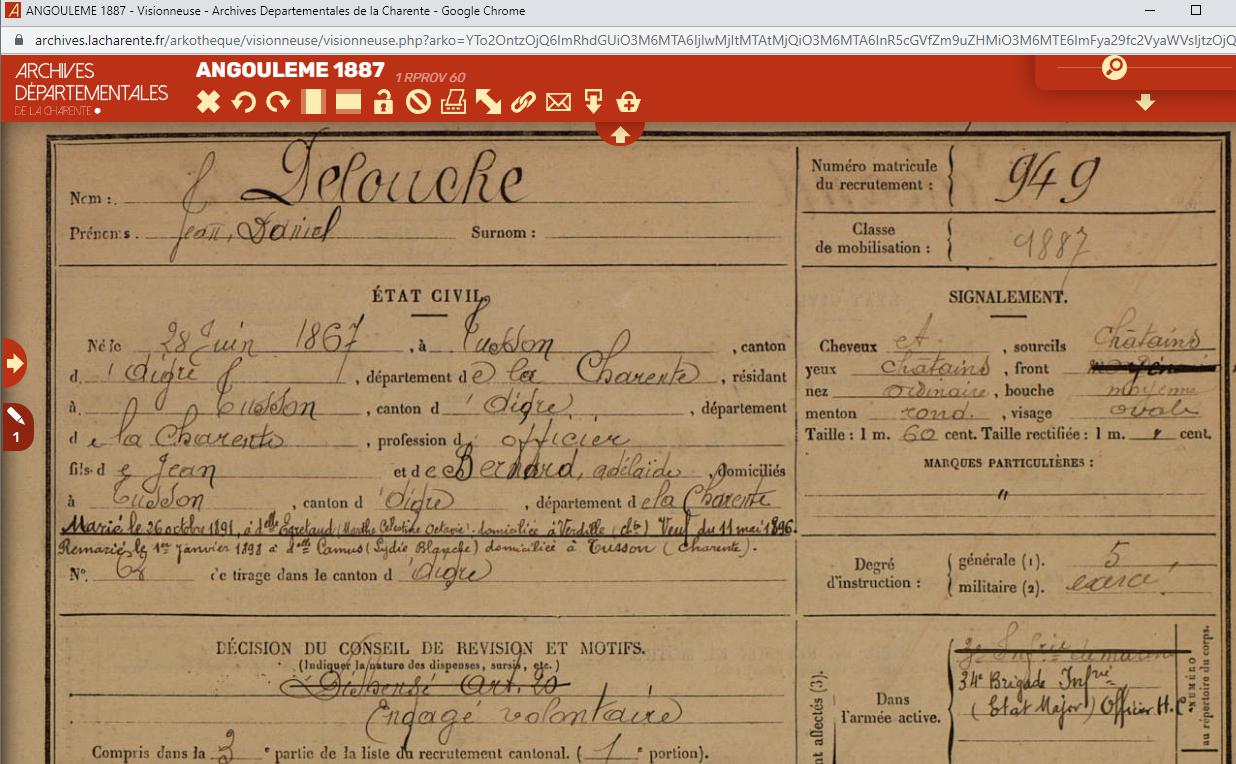 ANGOULEME 1887 - Visionneuse - Archives Departementales de la Charente - Google Chrome
archives.lacharente.fr/arkotheque/visionneuse/visionneuse.php?arko=
ARCHIVES
DÉPARTEMENTALES
DE LA CHARENTE
ANGOULEME 1887 1 RPROV 60
1
Nom : Delouche
Prénoms. Jean, Daniel Surnom :
Numéro matricule
du recrutement : 949
Classe
de mobilisation : 1887
ÉTAT CIVIL.
Né le 28 Juin 1867, à Tusson, canton
d'Aigre, département de la Charente, résidant
à Tusson, canton d'Aigre, département
de la Charente, profession d officier
fils de Jean et de Bernard, adélaïde, domiciliés
à Tusson, canton d'Aigre, département de la Charente
Marié le 26 octobre 1891, à dlle Egretaud (Marthe Célestine Octavie) domiciliée à Verdille (chte) Veuf du 11 mai 1896.
Remarié le 1er janvier 1898 à dlle Camus (Lydie Blanche) domiciliée à Tusson (Charente).
N° 68 de tirage dans le canton d'Aigre
SIGNALEMENT.
Cheveux et, sourcils châtains
yeux châtains, front
nez ordinaire, bouche moyenne
menton rond., visage ovale
Taille : 1 m. 60 cent. Taille rectifiée : 1 m. " cent.
MARQUES PARTICULIÈRES :
"
Degré
d'instruction : générale (1). 5
militaire (2). exercé
DÉCISION DU CONSEIL DE REVISION ET MOTIFS.
(Indiquer la nature des dispenses, sursis, etc.)
Dispensé Art. 20
Engagé volontaire
Compris dans la 3e partie de la liste du recrutement cantonal. (1e portion).
nt affectés (3).
Dans
l'armée active.
34e Brigade Infrie
(Etat Major) Officier H.C.
NUMÉRO
au répertoire du corps.